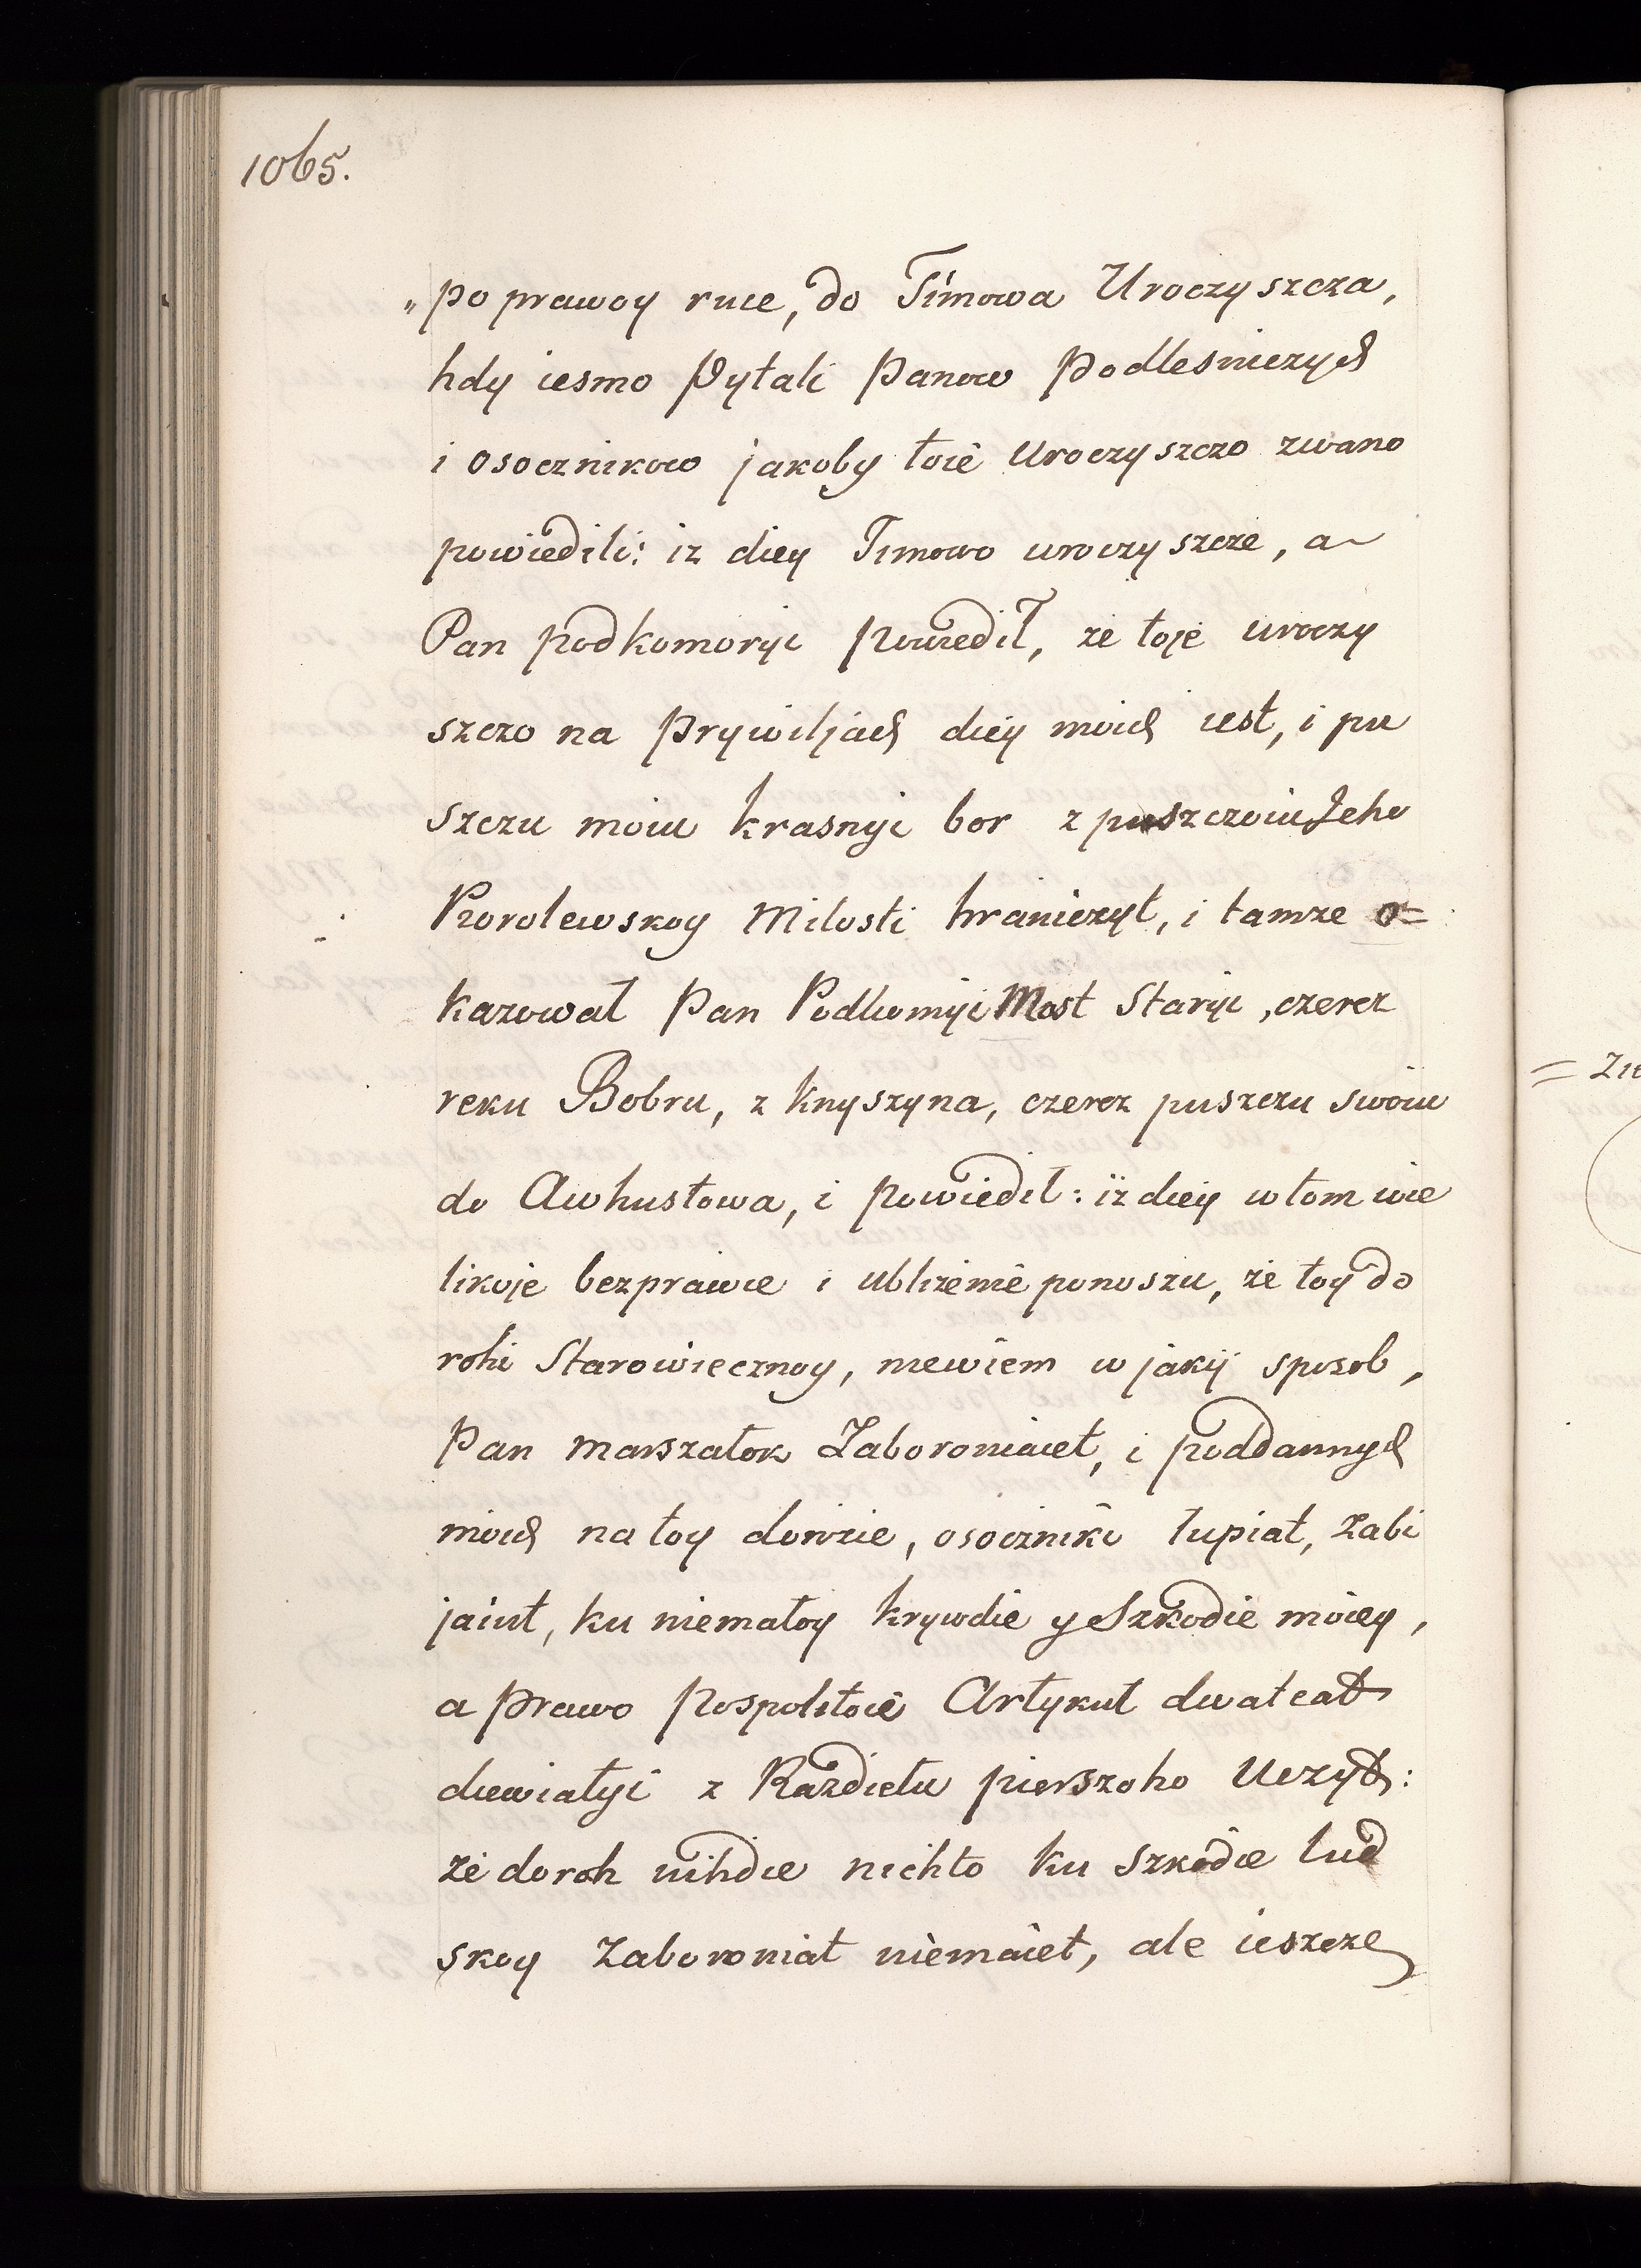 1065.
„po prawoy ruce, do Timowa Uroczyszcza,
hdy iesmo Pytali Panow Podlesniczych
i osocznikow jakoby toie Uroczyszczo zwano
powiedili: iz diey Timowo uroczyszcze, a
Pan podkomoryi powiedił, że toje uroczy
szczo na Prywiljach diey moich iest, i pu
szczu moiu krasnyi bor z puszczoiu Jeho
Korolewskoy Milosti hraniczył, i tamże o=
kazował Pan Podkomyi Most Staryi, czerez
reku Bobru, z Knyszyna, czerez puszczu swoiu
do Awhustowa, i powiedił: iż diey w tom wie
likoje bezprawie i ubliżenie ponoszu, że toy do
rohi Starowiecznoy, niewiem w jakij sposob,
Pan marszałok Zaboroniaiet, i poddannych
moich na toy dorozie, osoczniki łupiat, zabi
jaiut, ku niemałoy krywdie y Szkodie moiey,
a prawo pospolitoie Artykuł dwatcat
dewiatyi z Razdiełu pierszoho Uczyt:
że doroh nihdie nichto ku szkodie lud
skoy zaboroniat niemaiet, ale ieszcze
= Zu